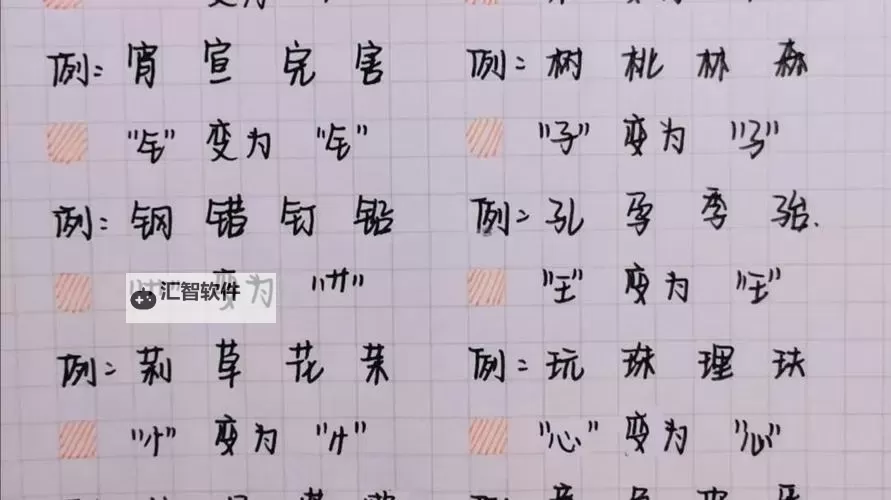 变为
例: 宵 宣 完 害
例: 树 桃 林 森
"钅" 变为 "钅"
"子" 变为 "子"
例: 钢 错 钉 铅
例: 孔 孕 季 孡.
汇智软件
变为 "艹"
"王" 变为 "王"
例: 荆 草 花 茉
例: 玩 珠 理 玞
"忄" 变为 "忄"
"心" 变为 "心"